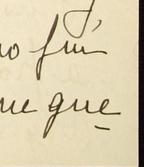 no fui
ue que